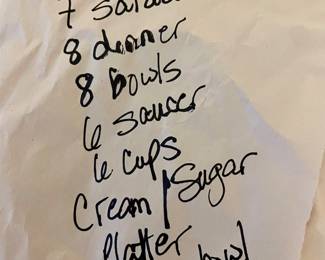 7 salad
8 dinner
8 bowls
6 saucer
6 cups
Cream/Sugar
Platter
bowl